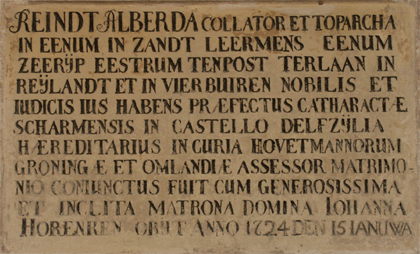 REINDT ALBERDA COLLATOR ET TOPARCHA
IN EENUM IN ZANDT LEERMENS EENUM
ZEERYP EESTRUM TENPOST TERLAAN IN
REŸLANDT ET IN VIERBUIREN NOBILIS ET
IUDICIS IUS HABENS PRÆFECTUS CATHARACTÆ
SCHARMENSIS IN CASTELLO DELFZŸLIA
HÆREDITARIUS IN CURIA HOVETMANNORUM
GRONINGÆ ET OMLANDIÆ ASSESSOR MATRIMO-
NIO CONIUNCTUS FUIT CUM GENEROSISSIMA
ET INCLITA MATRONA DOMINA IOHANNA
HORENKEN OBIIT ANNO 1724 DEN 15 IANUWA